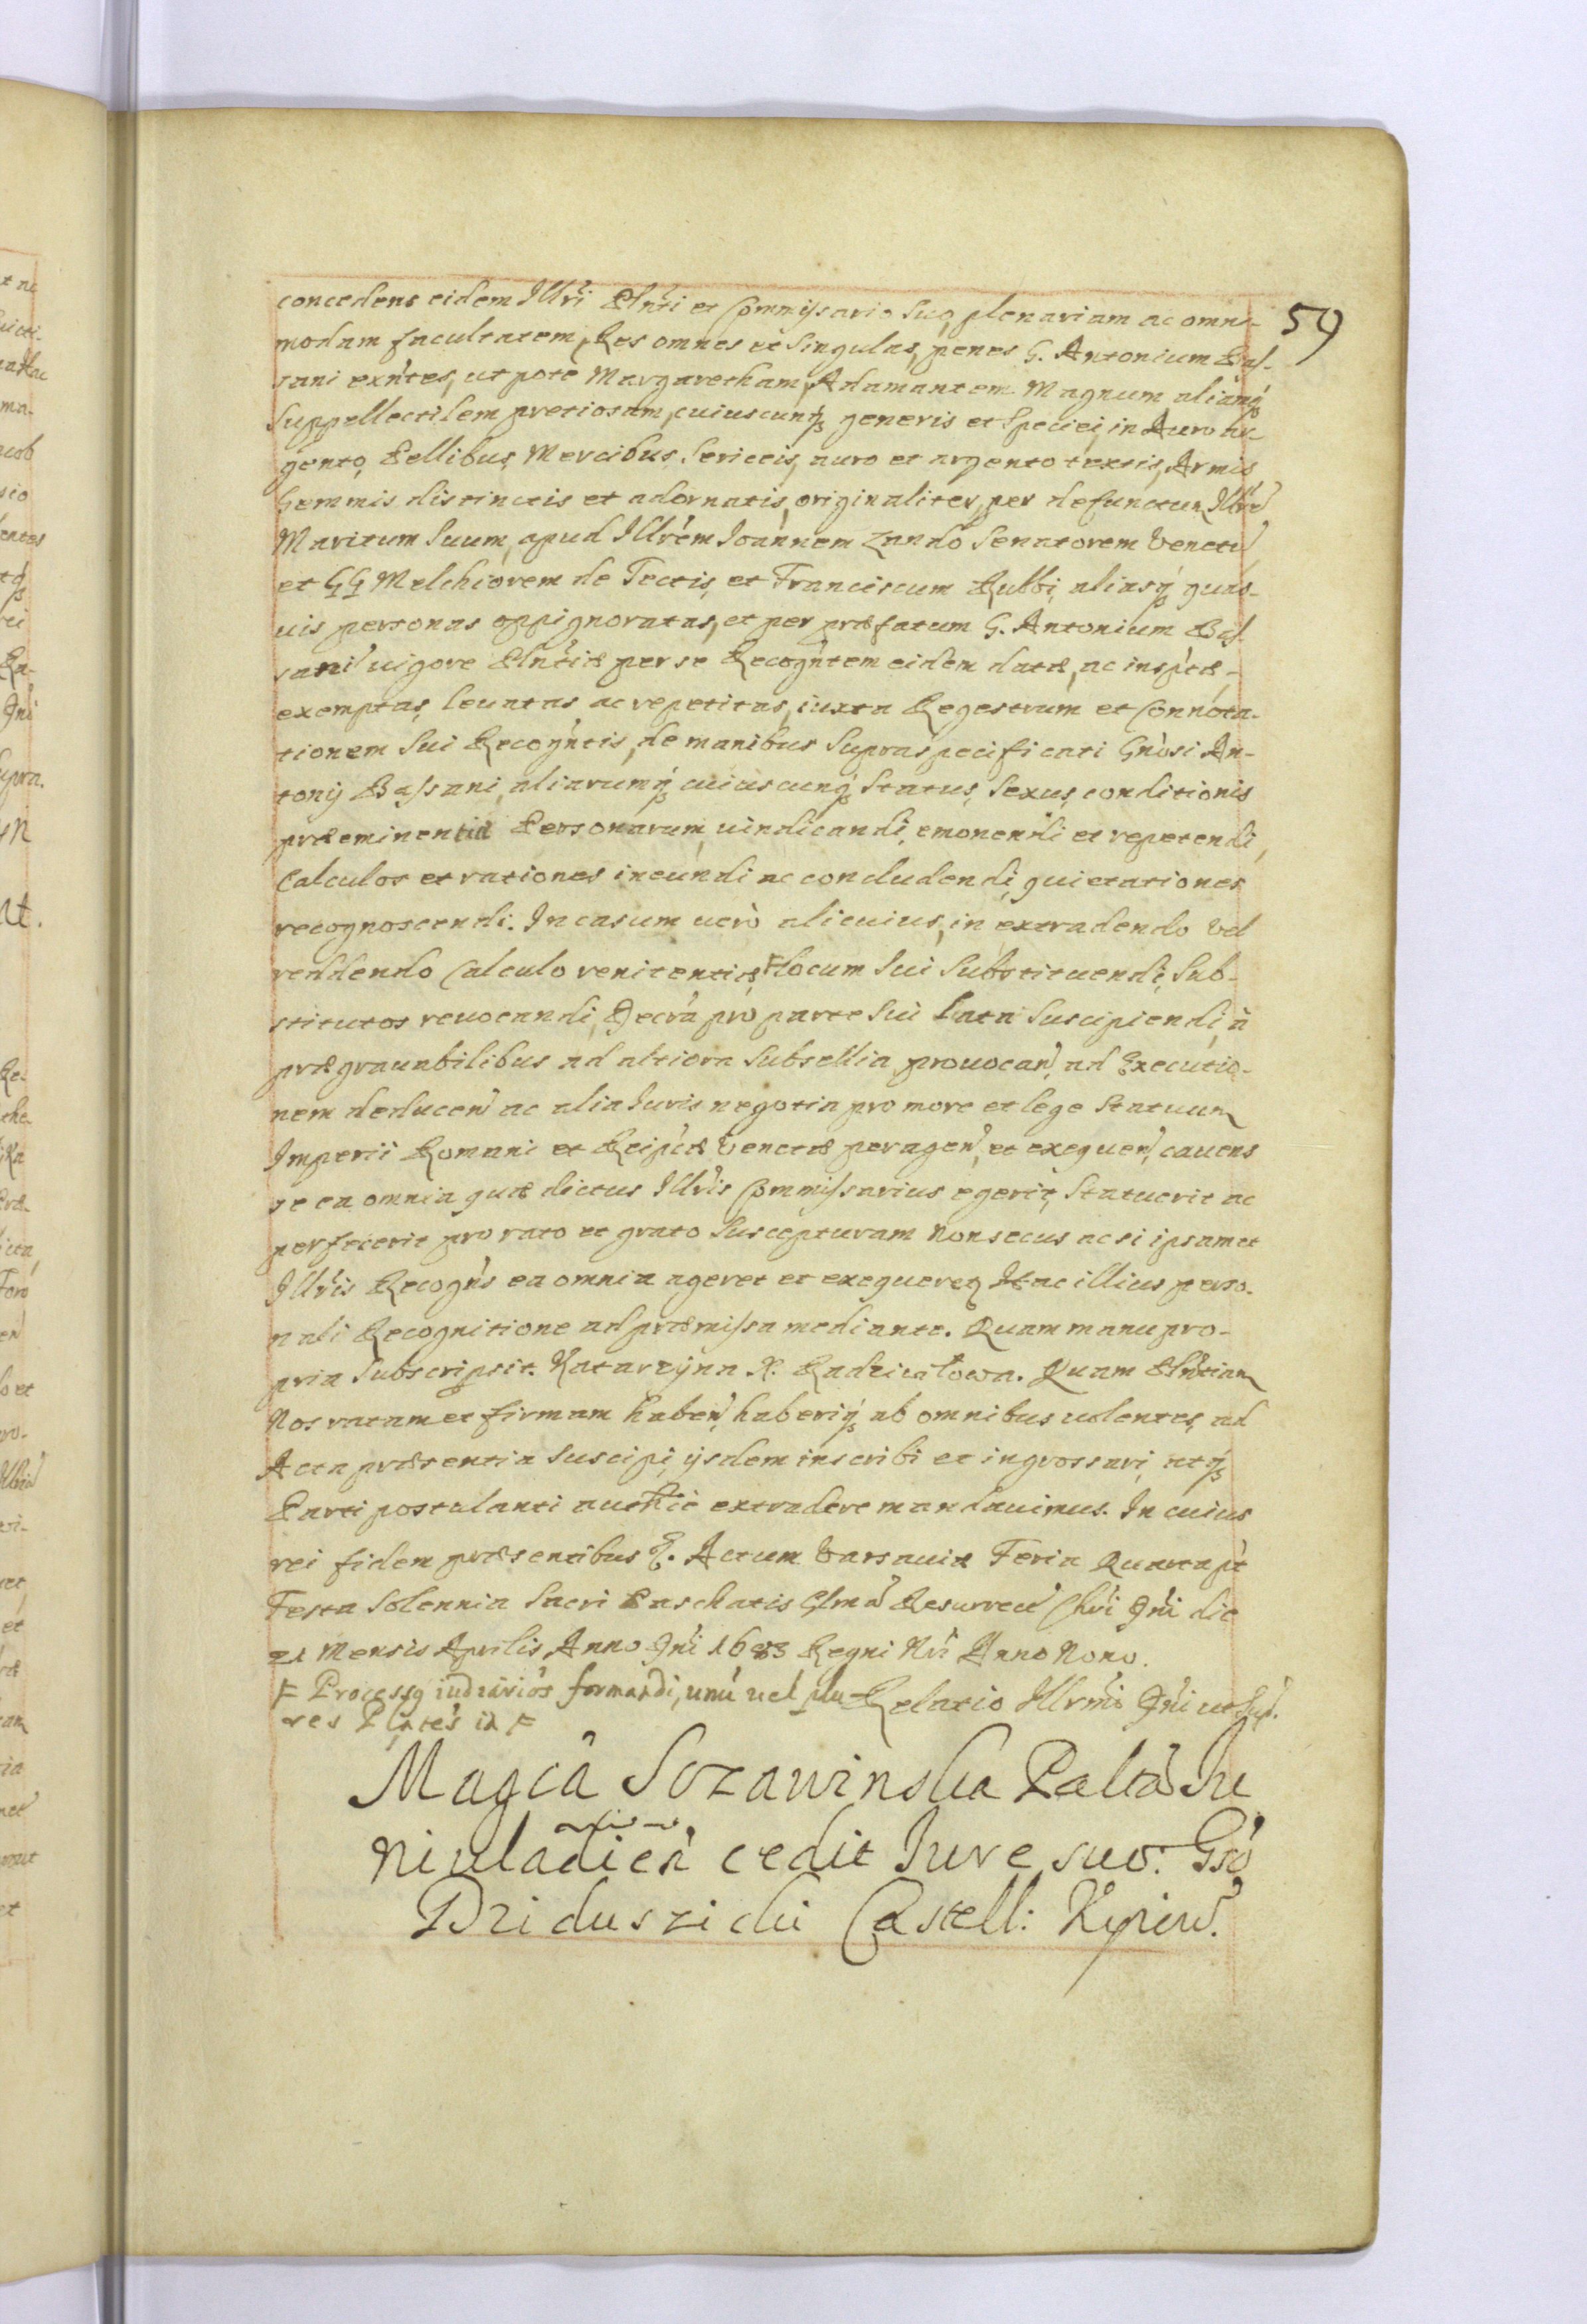 59
concedens eidem Illri Plnti et Commissario suo, plenariam ac omni-
modam facultatem, Res omnes et singulas, penes G. Antonium Bas-
sani exntes, ut pote Margaretham, Adamantem Magnum aliamq
Suppellectilem pretiosam, cuiuscunq generis et speciei, in Auro ar-
gento, Pellibus, Mercibus, Sericeis, auro et argento textis, Armis
Gemmis distinctis et adornatis, originaliter, per defunctum Illrem
Maritum Suum, apud Illrem Joannem Zando Senatorem Venetu
et GG Melchiorem de Tectis, et Franciscum Rubbi, aliasq quas-
uis personas oppignoratas, et per præfatum G. Antonium Bas-
sani uigore Plntiæ per se Recogntem eidem datæ, ac insptæ,
exemptas, leuatas ac repetitas, iuxta Regestrum et Connota-
tionem sui Recogntis, de manibus supraspecificati Gnosi An-
tonij Bassani, aliarumq cuiuscunq status, sexus, conditionis
præeminentia Personarum, uindicandi, emonendi et repetendi,
Calculos et rationes ineundi ac concludendi, quietationes
recognoscendi. In casum uero alicuius, in extradendo vel
reddendo Calculo renitentiæ, F locum sui substituendi, sub-
stitutos reuocandi, Decra pro parte sui lata suscipiendi, à
prægrauabilibus ad altiora subsellia prouocan, ad Executio-
nem deducen ac alia Iuris negotia pro more et lege statuum
Imperii Romani et Reipcæ Venetæ peragen, et exequen, cauens
se ea omnia quæ dictus Illris Commissarius egerit, statuerit ac
perfecerit pro rato et grato suscepturam non secus ac si ipsamet
Illris Recogns ea omnia ageret et exequeret Hac illius perso-
nali Recognitione ad præmissa mediante. Quam manu pro-
pria subscripsit. Katarzyna X. Radziwiłowa. Quam Plntiam
Nos ratam et firmam haben, haberiq ab omnibus uolentes, ad
Acta præsentia suscipi, ijsdem inscribi et ingrossari, atq
Parti postulanti authce extradere mandauimus. In cuius
rei fidem præsentibus &. Actum Varsauiæ Feria Quarta pt
Festa Solennia Sacri Paschatis Resurrect Chri Dni die
21 Mensis Aprilis, Anno Dni 1683 Regni Nri Anno Nono.
F Processq iudicirios formandi, unu uel plu-
res Plntes in F
Relatio Illrmi Dni ut supr.
Magca Szczawinska Palta Iu
niuladien cedit Iure suo. Gso
Dziduszicki Castell: Kyiew.